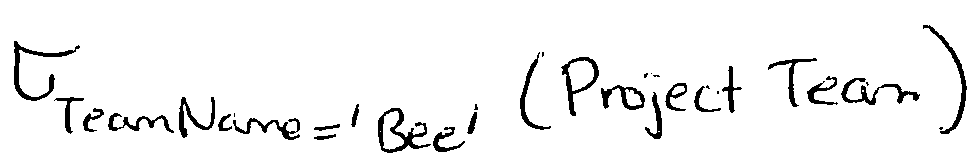 σ TeamName='Bee' (Project Team)